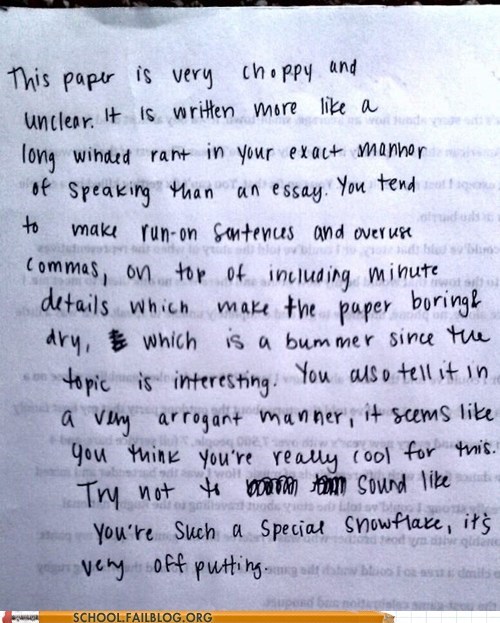 This paper is very choppy and
unclear. It is written more like a
long winded rant in your exact mannor
of speaking than an essay. You tend
to make run-on sentences and overuse
commas, on top of including minute
details which make the paper boring &
dry, which is a bummer since the
topic is interesting. You also tell it in
a very arrogant manner, it seems like
you think you're really cool for this.
Try not to sound like
you're such a special snowflake, it's
very off putting.
SCHOOL.FAILBLOG.ORG